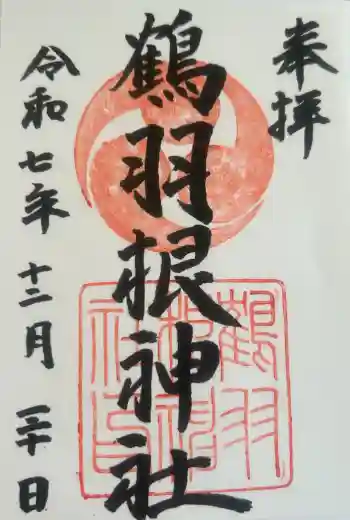 奉拝
鶴羽根神社
令和七年十二月二十日
鶴羽
根神
社印